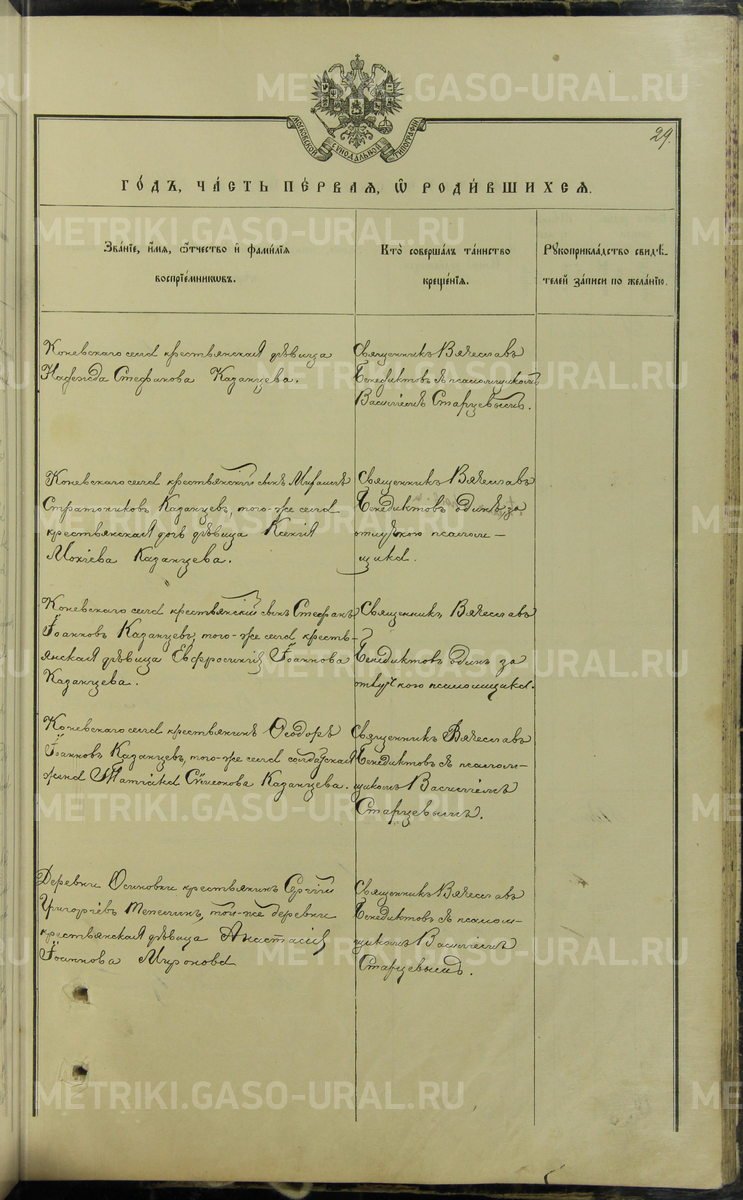 METRIKI.GASO-URAL.RU
МОСКОВСКОЙ СѴНОДАЛЬНОЙ ТИПОГРАФІИ
29.
ГО́ДЪ, ЧА́СТЬ ПЕ́РВАЯ, Ѡ҆ РОДИ́ВШИХСЯ.
Зва́нїе, и҆́мя, ѻ҆́тчество и҆ фами́лїя
воспрїе́мникѡвъ.
Кто̀ соверша́лъ та́инство
креще́нїѧ.
Рꙋкоприкла́дство свидѣ́-
телей за́писи по жела́нїю.
Коневскаго села крестьянская дѣвица
Надежда Стефанова Казанцева.
Священникъ Вячеславъ
Бенедиктовъ съ псаломщикомъ
Василіемъ Старцевымъ.
Коневскаго села крестьянскій сынъ
Стратониковъ Казанцевъ, того-же села
крестьянская дочь дѣвица Ксенія
Мокіева Казанцева.
Священникъ Вячеславъ
Бенедиктовъ одинъ за
отлучкою псалом-
щика.
Коневскаго села крестьянскій сынъ Стефанъ
Іоанновъ Казанцевъ, того-же села кресть-
янская дѣвица Евфросинія Іоаннова
Казанцева.
Священникъ Вячеславъ
Бенедиктовъ одинъ за
отлучкою псаломщика.
Коневскаго села крестьянинъ Ѳеодоръ
Іоанновъ Казанцевъ, того-же села солдатская
жена Татіана Симеонова Казанцева.
Священникъ Вячеславъ
Бенедиктовъ съ псалом-
щикомъ Василіемъ
Старцевымъ.
Деревни Осиновки крестьянинъ Сергій
Григорьевъ той-же деревни
крестьянская дѣвица Анастасія
Іоаннова Миронова
Священникъ Вячеславъ
Бенедиктовъ съ псалом-
щикомъ Василіемъ
Старцевымъ.